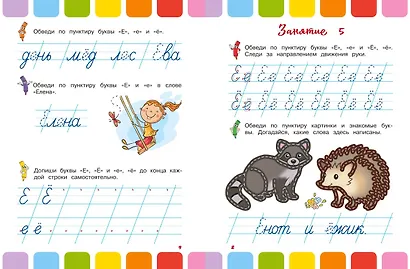 Обведи по пунктиру буквы «Е», «е» и «ё».
день мёд лес Ева
Обведи по пунктиру буквы «Е» и «е» в слове
«Елена».
Елена
Допиши буквы «Е», «Ё» и «е», «ё» до конца каж-
дой строки самостоятельно.
Е Ё
е ё
Занятие 5
Обведи по пунктиру буквы «Е», «е» и «Ё», «ё».
Следи за направлением движения руки.
Обведи по пунктиру картинки и знакомые бук-
вы. Догадайся, какие слова здесь написаны.
Енот и ёжик.